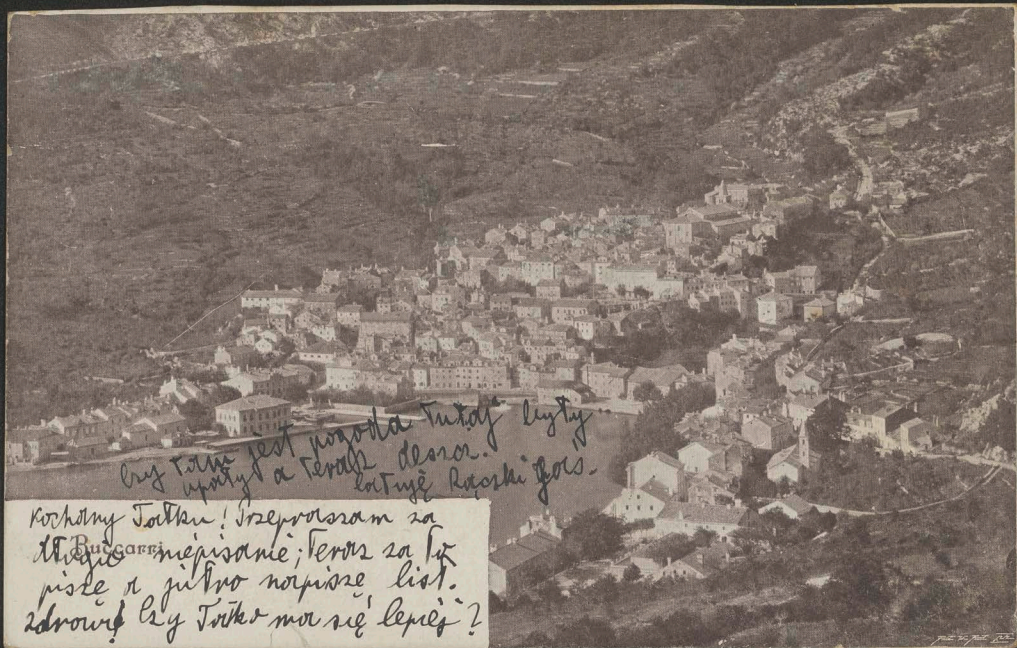 Czy tam jest pogoda Tutaj były
upały a teraz deszcz.
całuję Rączki
Kochany Tatku! Przepraszam za
długie niepisanie; Teraz za to
Buccari
piszę a jutro napiszę list.
zdrowie! Czy Tatko ma się lepiej?